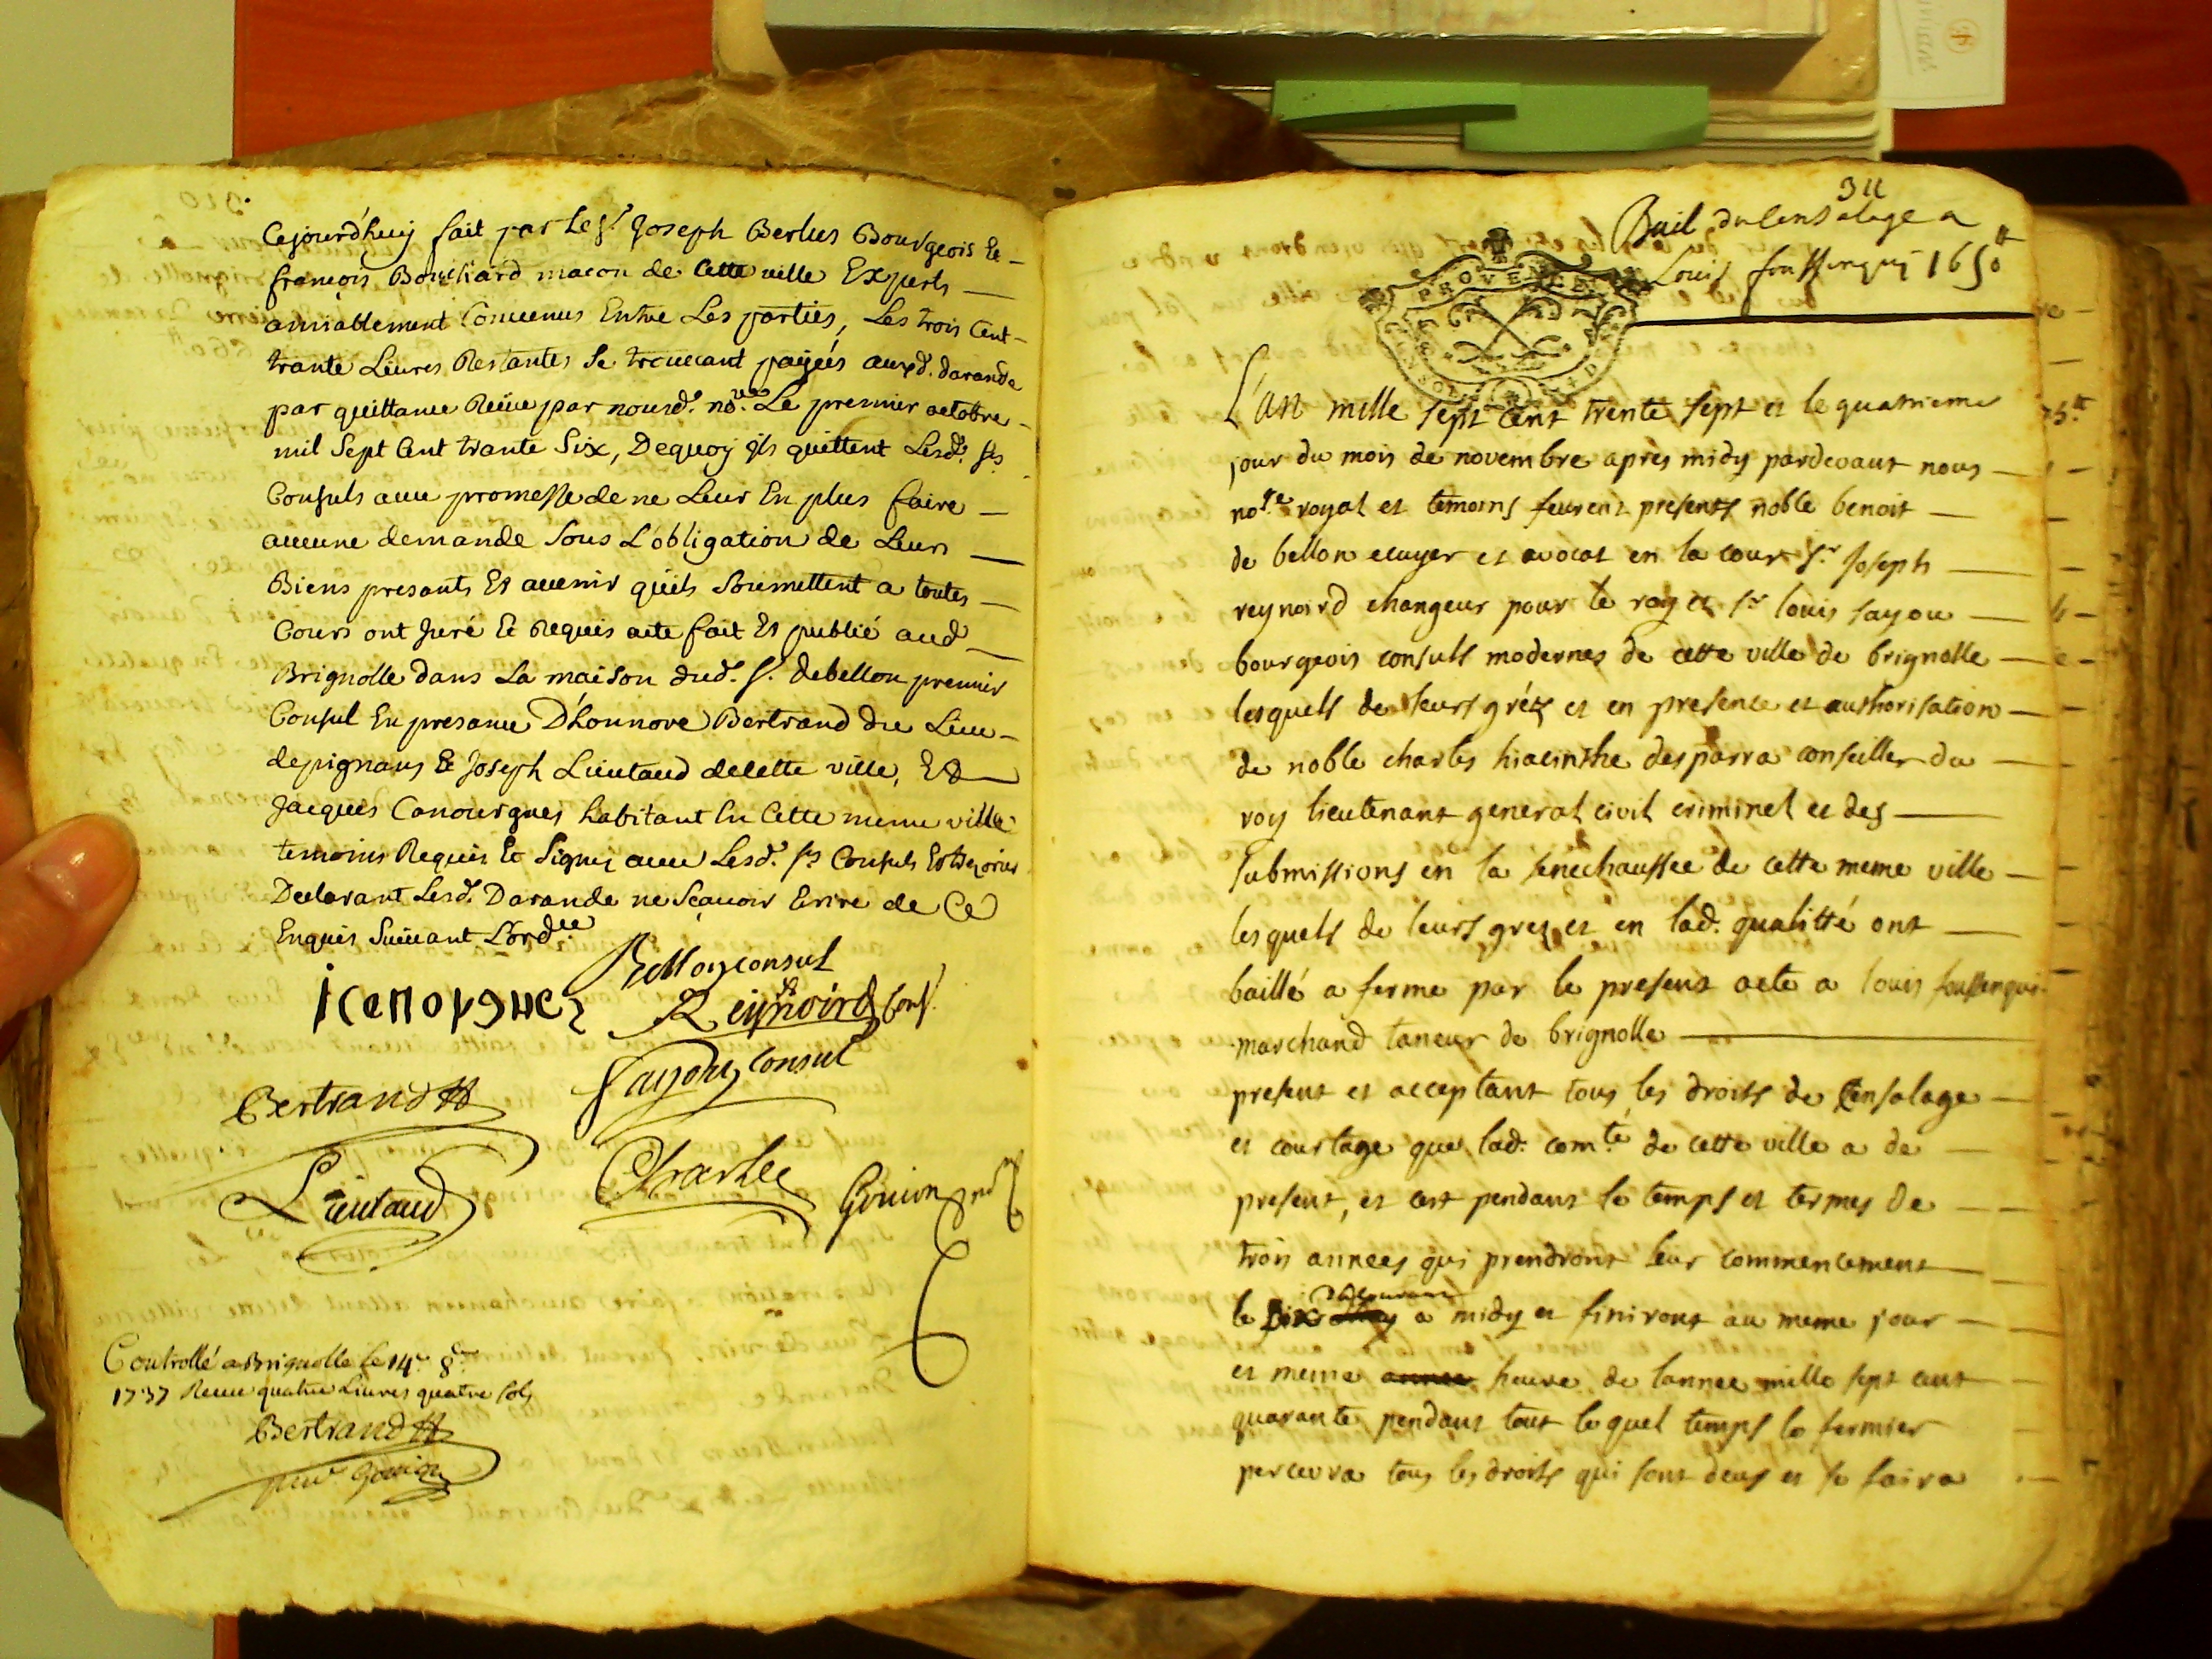 Cejourd'huy fait par le Sr. Joseph Berlus Bourgeois Et
françois Bouchard macon de Cette ville Experts
amiablement Conuenus Entre Les parties, Les trois Cent
trante Liures Restantes Se trouuant payéés auxd. darande
par quittance Reüe par nousd. nore. Le premier octobre
mil Sept Cent trante Six, Dequoy ils quittent Lesd. srs.
Consuls auec promesse de ne Leur En plus faire
aucune demande Sous L'obligation de Leurs
Biens presants Et auenir qu'ils Soumettent a toutes
Cours ont Juré Et Requis acte fait Et publié aud.
Brignolle dans La maison dud. Sr. debellon premier
Consul En presance D'honnore Bertrand du Lieu
depignans Et Joseph Lieutaud de Cette ville, Et
Jacques Canourgues habitant En Cette meme ville
temoins Requis Et Signez auec Lesd. srs Consuls
Declarant Lesd. Darande ne Sçauoir Ecrire de Ce
Enquis Suiuant L'ordce
Bellon consul
Jcanorgues
Reynoird Cons.
Sayou consul
Bertrand
Lieutaud
Charlee
Gouion
Controllé a Brignolle le 14e 8bre
1737 Receu quatre Liures quatre sols
Bertrand
Gouion
311
Bail du Censalage a
Louis foussenquy 1650tt
PROVENCE
L'an mille sept cent trente sept et le quatrieme
jour du mois de novembre apres midy pardevant nous
nore. royal et temoins feurent presents noble benoit
de bellon ecuyer et avocat en la cour sr. Joseph
reynoird changeur pour le roy et sr louis sayou
bourgeois consuls modernes de cette ville de brignolle
lesquels de leurs gréz et en presence et authorisation
de noble charles hiacinthe desparra conseiller du
roy lieutenant general civil criminel et des
submissions en la senechaussee de cette meme ville
lesquels de leurs grez et en lad. qualitté ont
baillé a ferme par le present acte a louis foussenqui
marchand taneur de brignolle
present et acceptant tous les droits de Censalage
et courtage que lad. comté. de cette ville a de
present, et cest pendant le temps et termes de
trois annees qui prendront leur commencement
du courant
le Dix a midy et finiront au meme jour
et meme annee heure de lannee mille sept cent
quarante pendant tout lequel temps le fermier
percevra tous les droits qui sont deus et se faira